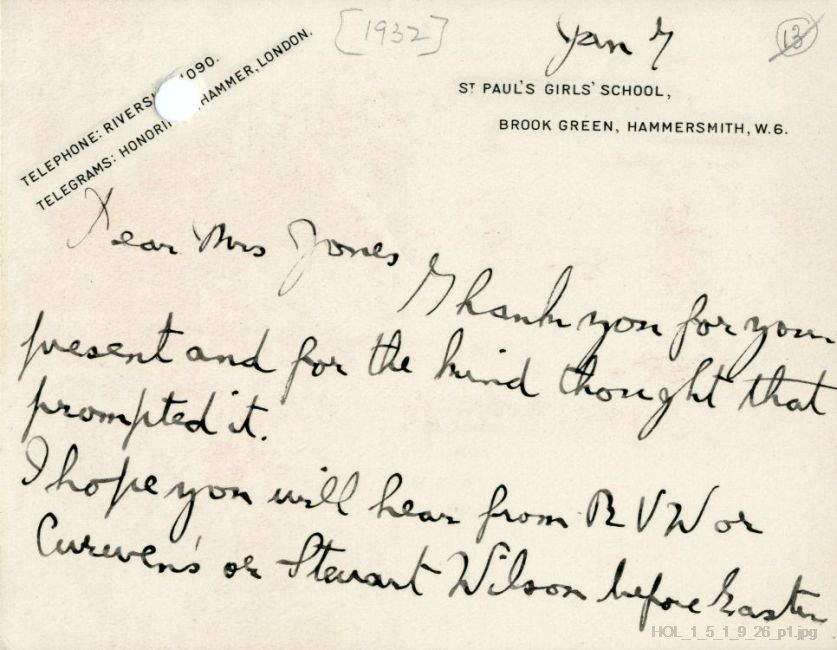 [1932]
Jan 7
13
TELEPHONE: RIVERSI 090.
TELEGRAMS: HONORI HAMMER, LONDON.
ST PAUL'S GIRLS' SCHOOL,
BROOK GREEN, HAMMERSMITH, W.6.
Dear Mrs Jones
Thank you for your
present and for the kind thought that
prompted it.
I hope you will hear from RVW or
Curwen's or Steuart Wilson before Easter
HOL_1_5_1_9_26_p1.jpg